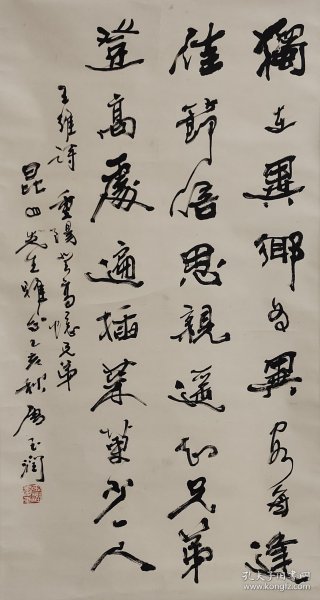 獨在異鄉為異客每逢
佳節倍思親遥知兄弟
登高處遍插茱萸少一人
王維詩 重陽登高憶兄弟
先生雅 乙亥秋 玉润
孔夫子旧书网